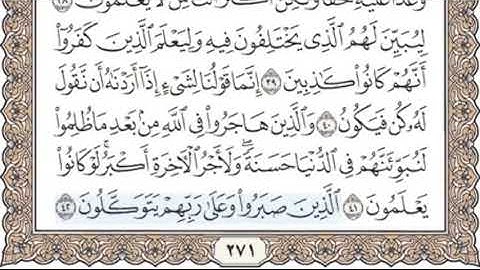 وَعْدًا عَلَيْهِ حَقًّا وَلَٰكِنَّ أَكْثَرَ ٱلنَّاسِ لَا يَعْلَمُونَ ٣٨
لِيُبَيِّنَ لَهُمُ ٱلَّذِى يَخْتَلِفُونَ فِيهِ وَلِيَعْلَمَ ٱلَّذِينَ كَفَرُوٓا۟
أَنَّهُمْ كَانُوا۟ كَٰذِبِينَ ٣٩ إِنَّمَا قَوْلُنَا لِشَىْءٍ إِذَآ أَرَدْنَٰهُ أَن نَّقُولَ
لَهُۥ كُن فَيَكُونُ ٤٠ وَٱلَّذِينَ هَاجَرُوا۟ فِى ٱللَّهِ مِنۢ بَعْدِ مَا ظُلِمُوا۟
لَنُبَوِّئَنَّهُمْ فِى ٱلدُّنْيَا حَسَنَةً ۖ وَلَأَجْرُ ٱلْءَاخِرَةِ أَكْبَرُ ۚ لَوْ كَانُوا۟
يَعْلَمُونَ ٤١ ٱلَّذِينَ صَبَرُوا۟ وَعَلَىٰ رَبِّهِمْ يَتَوَكَّلُونَ ٤٢
٢٧١